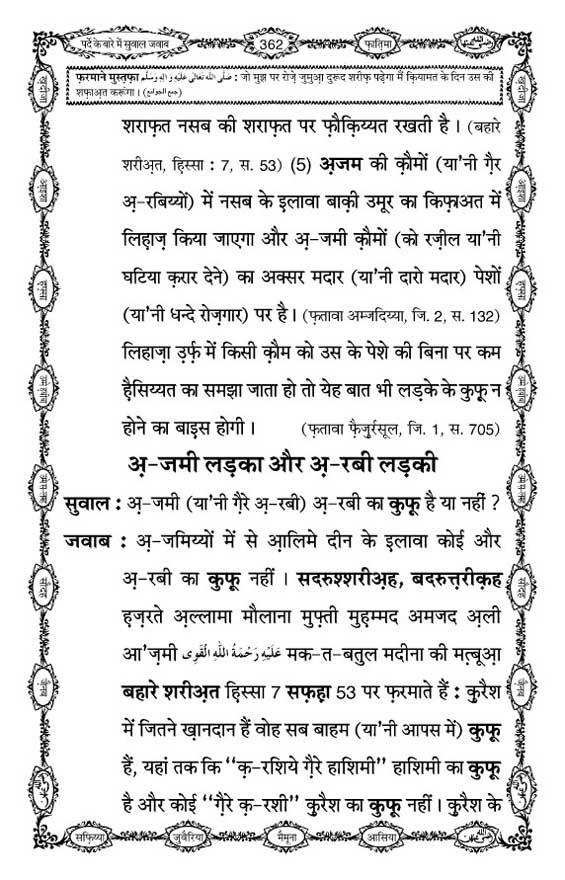 पर्दे के बारे में सुवाल जवाब
362
फ़ातिमा
फ़रमाने मुस्तफ़ा صَلَّى اللهُ تَعَالٰى عَلَيْهِ وَاٰلِهٖ وَسَلَّم : जो मुझ पर रोज़े जुमुआ़ दुरूद शरीफ़ पढ़ेगा मैं क़ियामत के दिन उस की
शफ़ाअ़त करूंगा । (جمع الجوامع)
शराफ़त नसब की शराफ़त पर फ़ौक़िय्यत रखती है । (बहारे
शरीअ़त, हिस्सा : 7, स. 53) (5) अ़जम की क़ौमों (या'नी ग़ैर
अ़-रबिय्यों) में नसब के इलावा बाक़ी उमूर का किफ़ाअत में
लिहाज़ किया जाएगा और अ़-जमी क़ौमों (को रज़ील या'नी
घटिया क़रार देने) का अक्सर मदार (या'नी दारो मदार) पेशों
(या'नी धन्दे रोज़गार) पर है । (फ़तावा अम्जदिय्या, जि. 2, स. 132)
लिहाज़ा उ़र्फ़ में किसी क़ौम को उस के पेशे की बिना पर कम
है़सिय्यत का समझा जाता हो तो येह बात भी लड़के के कुफ़ू न
होने का बाइस होगी । (फ़तावा फ़ैज़ुर्रसूल, जि. 1, स. 705)
अ़-जमी लड़का और अ़-रबी लड़की
सुवाल : अ़-जमी (या'नी ग़ैरे अ़-रबी) अ़-रबी का कुफ़ू है या नहीं ?
जवाब : अ़-जमिय्यों में से आ़लिमे दीन के इलावा कोई और
अ़-रबी का कुफ़ू नहीं । सदरुश्शरीअ़ह, बदरुत़्त़रीक़ह
ह़ज़रते अ़ल्लामा मौलाना मुफ़्ती मुह़म्मद अमजद अ़ली
आ'ज़मी عَلَيْهِ رَحْمَةُ اللهِ الْقَوِى मक-त-बतुल मदीना की मत़्बूआ़
बहारे शरीअ़त हिस्सा 7 सफ़ह़ा 53 पर फ़रमाते हैं : क़ुरैश
में जितने ख़ानदान हैं वोह सब बाहम (या'नी आपस में) कुफ़ू
हैं, यहां तक कि “क़-रशिये ग़ैरे हाशिमी” हाशिमी का कुफ़ू
है और कोई “ग़ैरे क़-रशी” क़ुरैश का कुफ़ू नहीं । क़ुरैश के
सफ़िय्या
जुवैरिया
मैमूना
आसिया